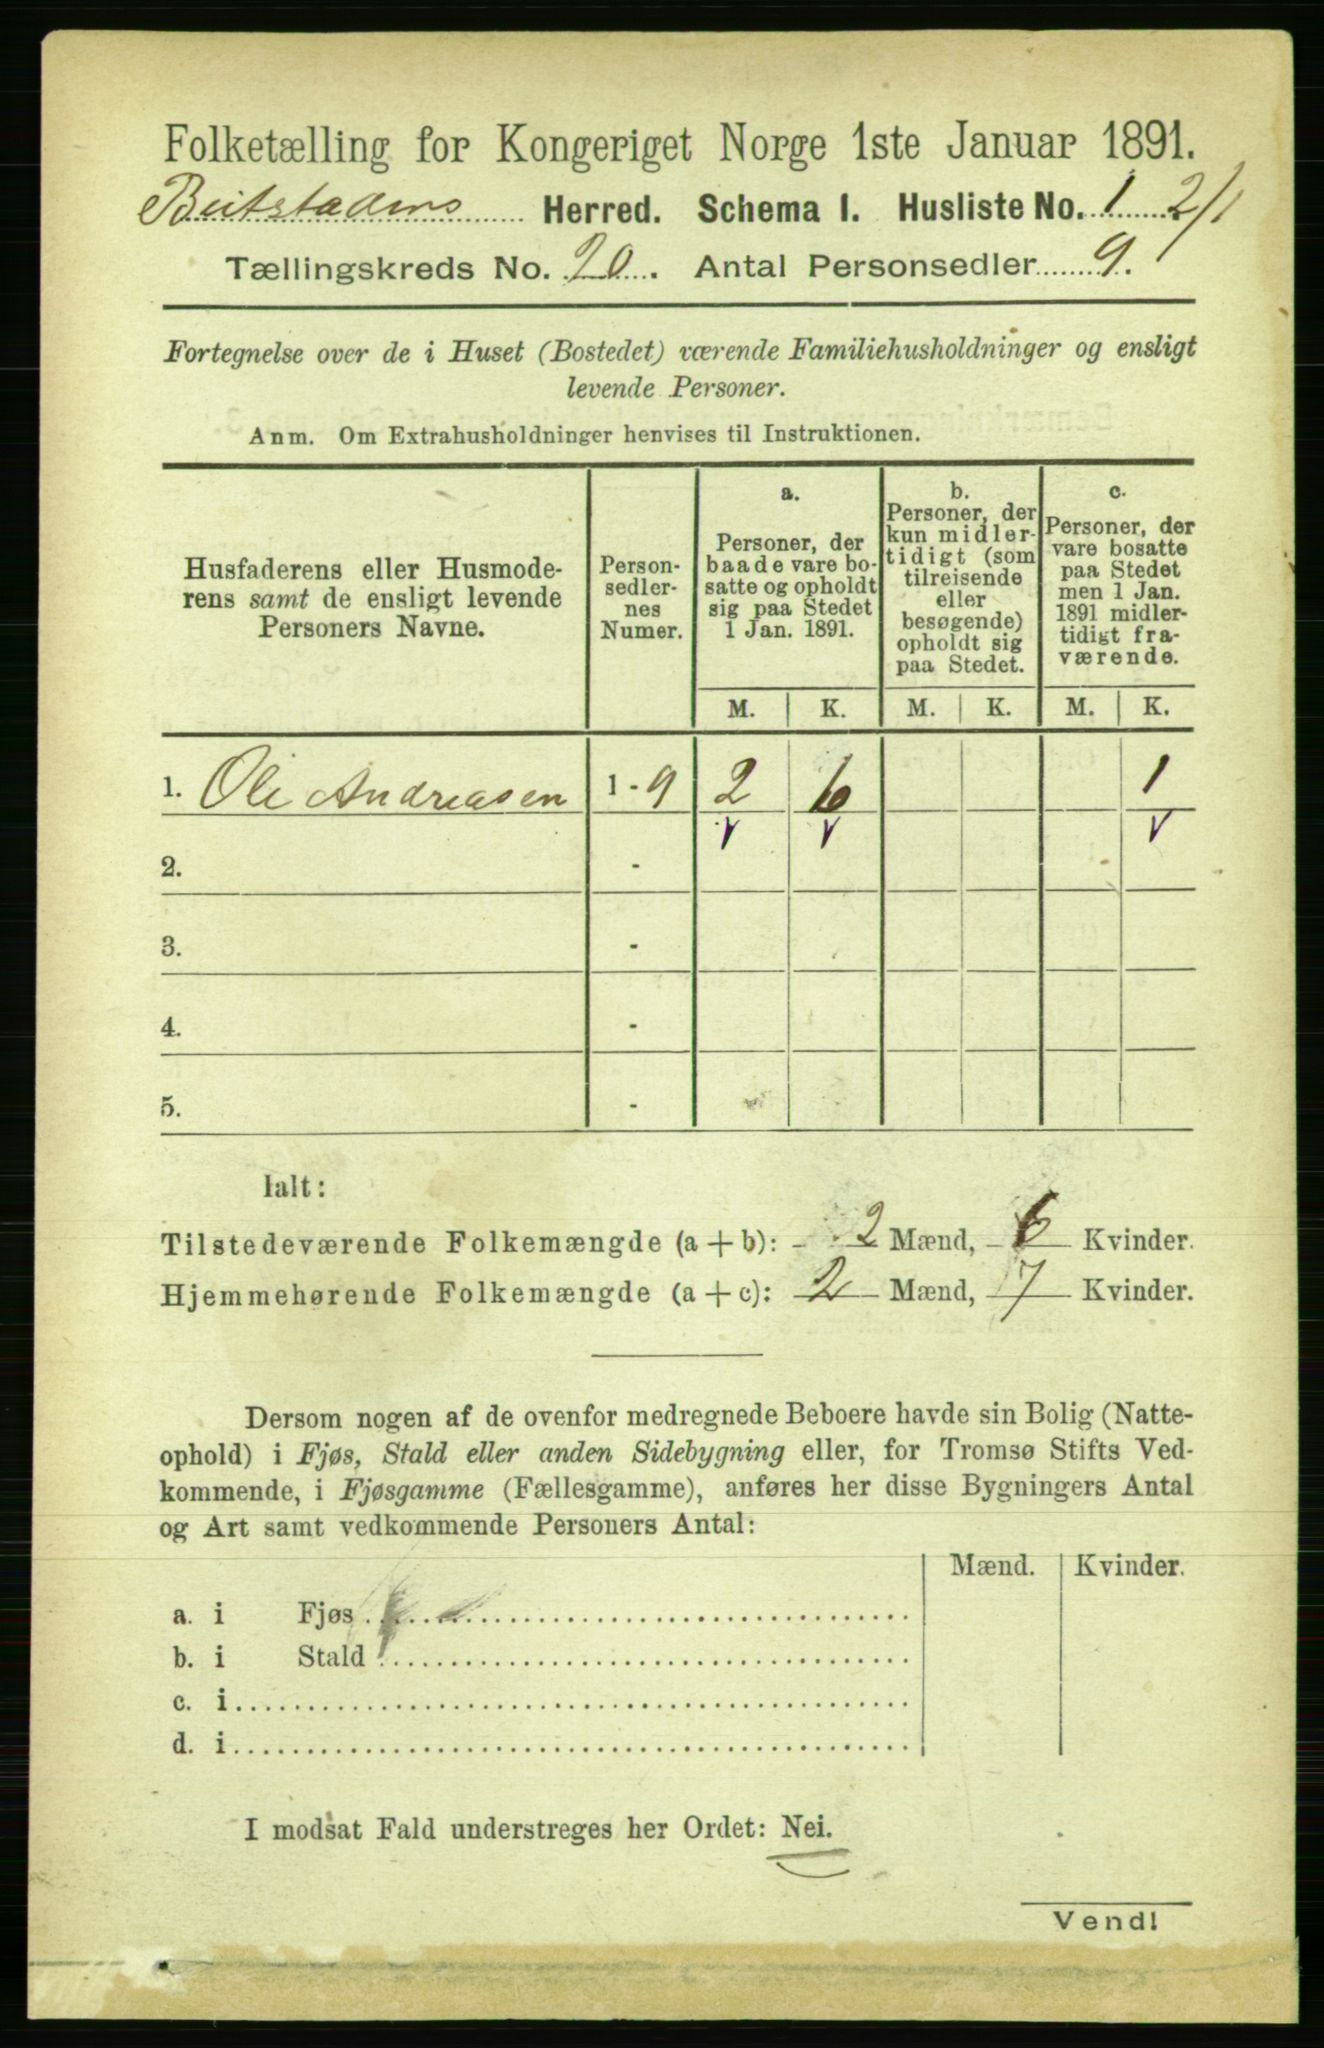 Folketælling for Kongeriget Norge 1ste Januar 1891.
Beitstadens Herred. Schema I. Husliste No. 1 2/1
Tællingskreds No. 20. Antal Personsedler 9.
Fortegnelse over de i Huset (Bostedet) værende Familiehusholdninger og ensligt
levende Personer.
Anm. Om Extrahusholdninger henvises til Instruktionen.
Husfaderens eller Husmode-
rens samt de ensligt levende
Personers Navne.
Person-
sedler-
nes
Numer.
a.
Personer, der
baade vare bo-
satte og opholdt
sig paa Stedet
1 Jan. 1891.
b.
Personer, der
kun midler-
tidigt (som
tilreisende
eller
besøgende)
opholdt sig
paa Stedet.
c.
Personer, der
vare bosatte
paa Stedet
men 1 Jan.
1891 midler-
tidigt fra-
værende.
M. K. M. K. M. K.
1. Ole Andreasen 1 - 9 2 6 1
v v v
2. -
3. -
4. -
5. -
Ialt:
Tilstedeværende Folkemængde (a + b): 2 Mænd, 6 Kvinder.
Hjemmehørende Folkemængde (a + c): 2 Mænd, 7 Kvinder.
Dersom nogen af de ovenfor medregnede Beboere havde sin Bolig (Natte-
ophold) i Fjøs, Stald eller anden Sidebygning eller, for Tromsø Stifts Ved-
kommende, i Fjøsgamme (Fællesgamme), anføres her disse Bygningers Antal
og Art samt vedkommende Personers Antal:
Mænd. Kvinder.
a. i Fjøs
b. i Stald
c. i
d. i
I modsat Fald understreges her Ordet: Nei.
Vend!